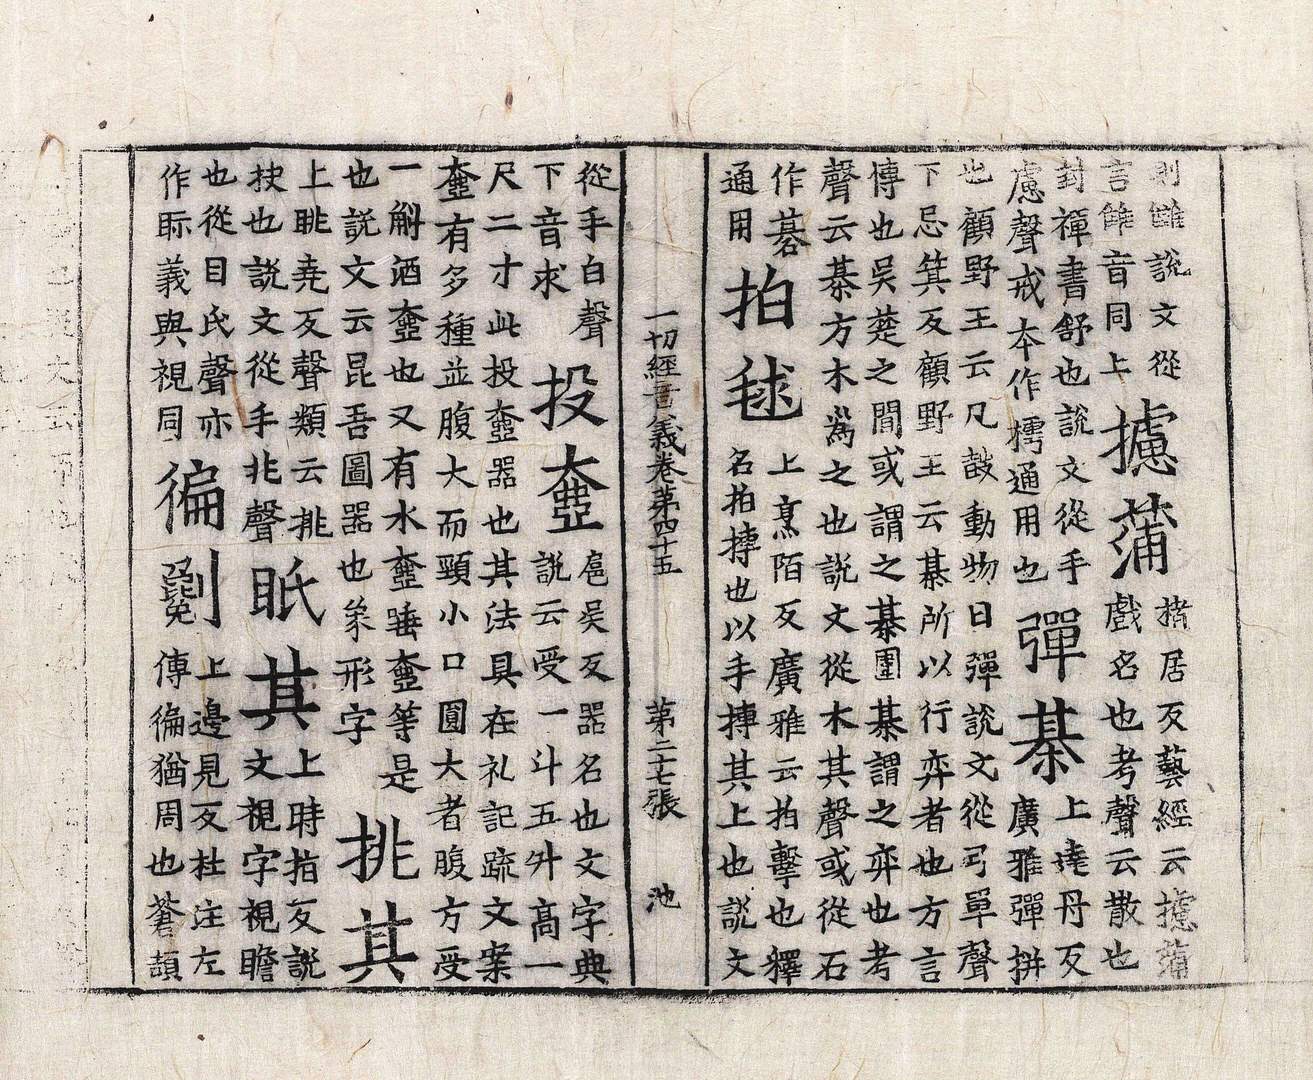 說文從
言雔音同上
攄蒲
居反藝經云攄蒲
戲名也考聲云散也
封禪書舒也說文從手
慮聲戒本作摴通用也
彈棊
上達丹反
廣雅彈拼
也顧野王云凡鼓動物曰彈說文從弓單聲
下忌箕反顧野王云棊所以行弈者也方言
博也吳楚之間或謂之棊圍棊謂之弈也考
聲云棊方木爲之也說文從木其聲或從石
作碁
通用
拍毬
上烹陌反廣雅云拍擊也釋
名拍搏也以手搏其上也說文
一切經音義卷第四十五 第二十七張 池
從手白聲
下音求
投壺
扈吳反器名也文字典
說云受一斗五升高一
尺二寸此投壺器也其法具在礼記疏文案
壺有多種並腹大而頸小口圓大者腹方受
一斛酒壺也又有水壺唾壺等是
也說文云昆吾圖器也象形字
挑其
上眺堯反聲類云挑
抉也說文從手兆聲
眡其
上時指反說
文視字視瞻
也從目氏聲亦
作眎義與視同
徧劖
上邊見反杜注左
傳徧猶周也蒼頡